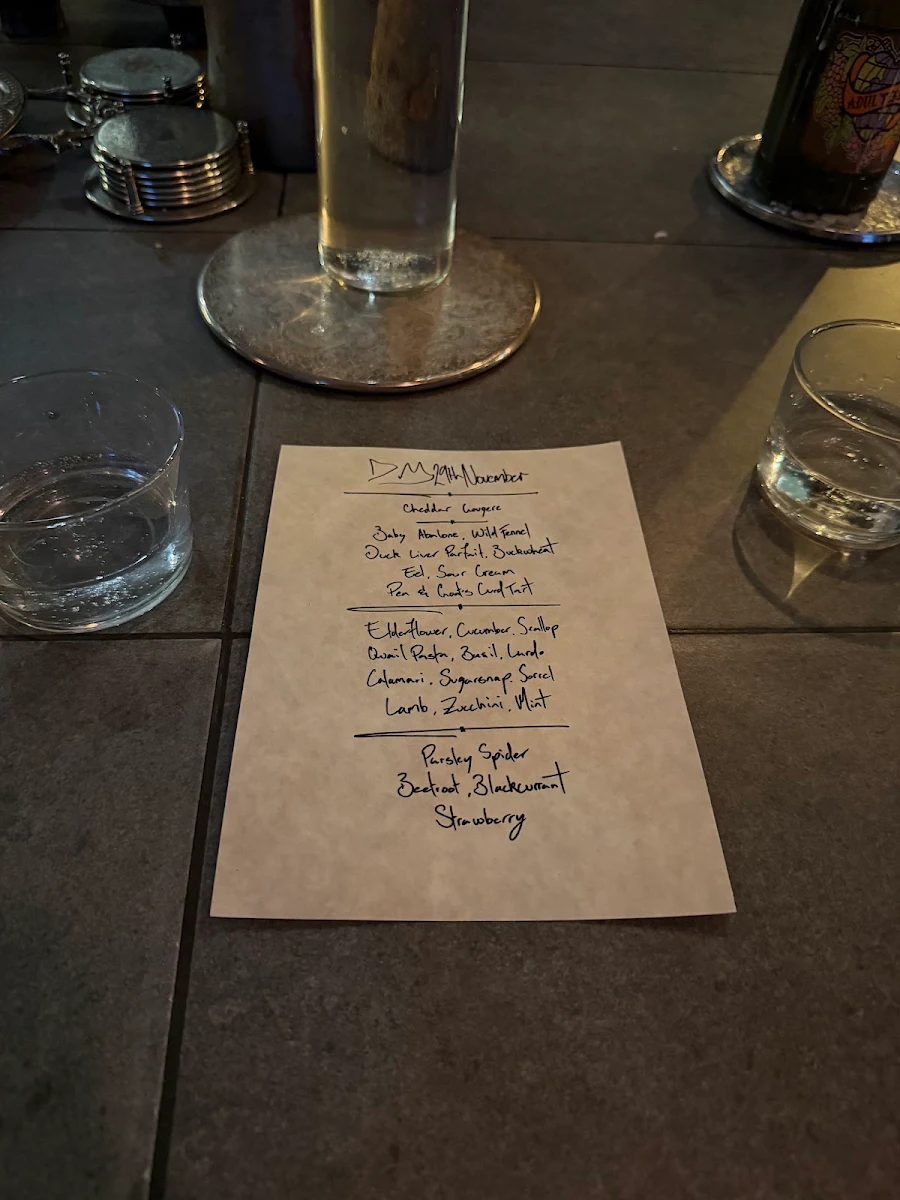 DM 29th November
Cheddar Gougere
Baby Abalone, Wild Fennel
Duck Liver Parfait, Buckwheat
Eel, Sour Cream
Pea & Goat's Curd Tart
Elderflower, Cucumber, Scallop
Quail Pasta, Basil, Lardo
Calamari, Sugarsnap, Sorrel
Lamb, Zucchini, Mint
Parsley Spider
Beetroot, Blackcurrant
Strawberry